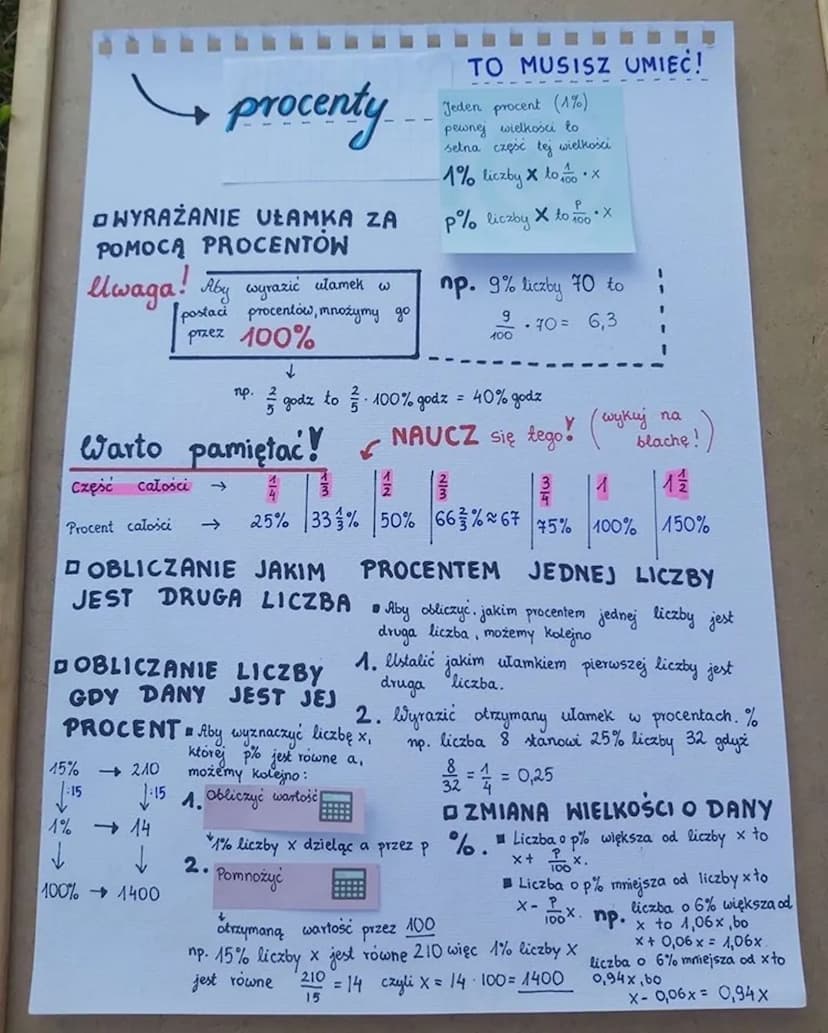 TO MUSISZ UMIEĆ!
procenty
Jeden procent (1%)
pewnej wielkości to
setna część tej wielkości
1% liczby x to 1/100 · x
p% liczby x to p/100 · x
WYRAŻANIE UŁAMKA ZA
POMOCĄ PROCENTÓW
Uwaga! Aby wyrazić ułamek w
postaci procentów, mnożymy go
przez 100%
np. 9% liczby 70 to
9/100 · 70 = 6,3
↓
np. 2/5 godz to 2/5 · 100% godz = 40% godz
Warto pamiętać!
NAUCZ się tego! (wykuj na
blachę!)
Część całości → 1/4 1/3 1/2 2/3 3/4 1 1 1/2
Procent całości → 25% 33 1/3% 50% 66 2/3% ≈ 67 75% 100% 150%
OBLICZANIE JAKIM PROCENTEM JEDNEJ LICZBY
JEST DRUGA LICZBA
Aby obliczyć, jakim procentem jednej liczby jest
druga liczba, możemy kolejno
1. Ustalić jakim ułamkiem pierwszej liczby jest
druga liczba.
2. Wyrazić otrzymany ułamek w procentach. %
np. liczba 8 stanowi 25% liczby 32 gdyż
8/32 = 1/4 = 0,25
OBLICZANIE LICZBY
GDY DANY JEST JEJ
PROCENT
Aby wyznaczyć liczbę x,
której p% jest równe a,
możemy kolejno:
15% → 210
↓:15 ↓:15
1% → 14
↓ ↓
100% → 1400
1. Obliczyć wartość
↓1% liczby x dzieląc a przez p
2. Pomnożyć
↓
otrzymaną wartość przez 100
np. 15% liczby x jest równe 210 więc 1% liczby x
jest równe 210/15 = 14 czyli x = 14 · 100 = 1400
ZMIANA WIELKOŚCI O DANY
%.
Liczba o p% większa od liczby x to
x + p/100 x.
Liczba o p% mniejsza od liczby x to
x - p/100 x.
np. liczba o 6% większa od
x to 1,06x, bo
x + 0,06x = 1,06x
liczba o 6% mniejsza od x to
0,94x, bo
x - 0,06x = 0,94x